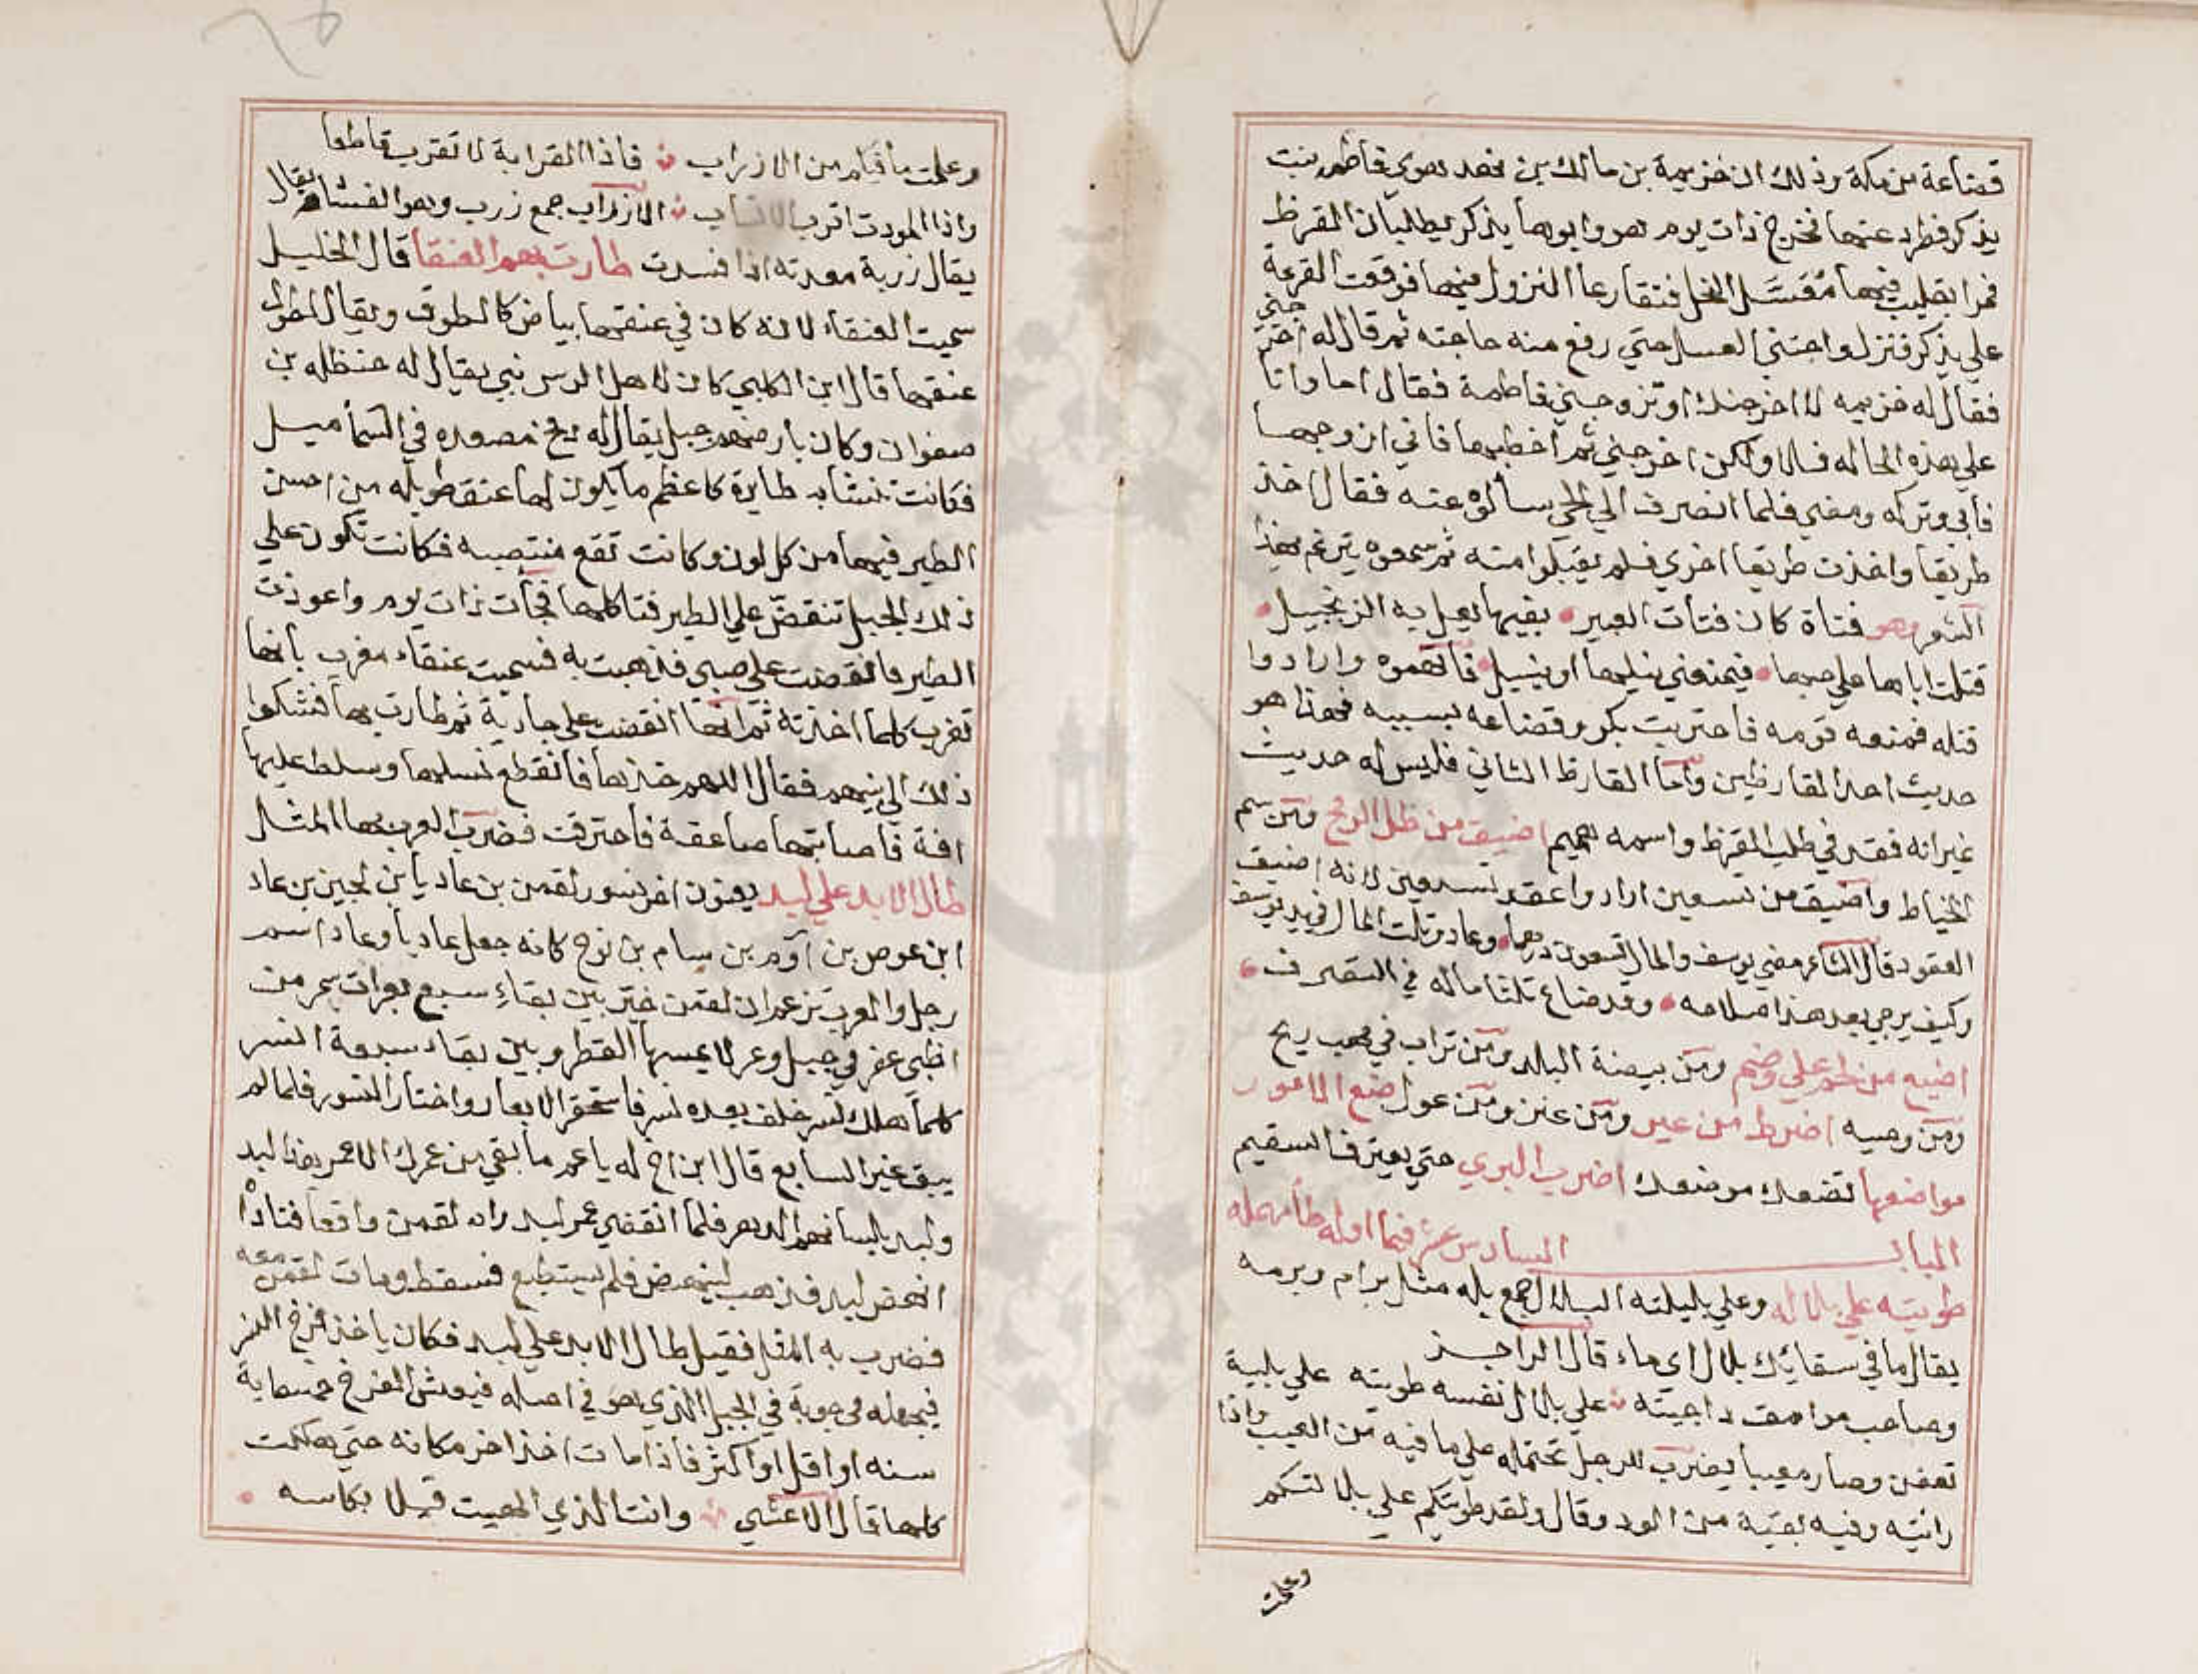 قضاعة من مكة وذلك ان خزيمة بن مالك بن نهد هوي فاطمه بنت
يذكر فطرد عنها فخرج ذات يوم هو وابوها يذكر يطلبان القرظ
فمرا بقليب فيها مُعَسَّل النحل فتقارعا النزول فيها فوقعت القرعة
علي يذكر فنزل واجتني العسل حتي رفع منه حاجته ثم قال له اخرجني
فقال له خزيمه لا اخرجنك او تزوجني فاطمة فقال اما وانا
علي هذه الحاله فلا ولكن اخرجني ثم اخطبها فاني ازوجها
فابي وتركه ومضي فلما انصرف الي الحي سالوه عنه فقال اخذ
طريقا واخذت طريقا اخري فلم يقبلوا منه ثم سمعوه يترنم بهذا
الشعر وهو فتاة كان فتات العبير بفيها يعل به الزنجبيل
قتلت اباها علي حبها فيمنعني نيلها او ينيل فاتهموه وارادوا
قتله فمنعه قومه فاحتربت بكر وقضاعه بسببه فهذا هو
حديث احد القارظين واما القارظ الثاني فليس له حديث
غير انه فقد في طلب القرظ واسمه هميم اضيق من ظل الرمح ومن سم
الخياط واضيق من تسعين ارادوا عقد تسعين لانه اضيق
العقود قال الشاعر مضي يوسف والمال تسعون درهما وعاد وثلث المال في يد يوسف
وكيف يرجي بعد هذا صلاحه وقد ضاع ثلثا ماله في التصرف
اضيع من لحم علي وضم ومن بيضة البلد ومن تراب في مهب ريح
ومن وصيه اضرط من عير ومن عنز ومن عول ضع الامور
مواضعها تضعك موضعك اضرب البري حتي يعترف السقيم
الباب السادس عشر فيما اوله طا مهمله
طويته علي بلاله وعلي بليلته البلال جمع بله مثل برام وبرمه
يقال ما في سقائك بلال اي ماء قال الراجز
وصاحب مرامق داجيته علي بلال نفسه طويته علي بلية
تعفن وصار معيبا يضرب للرجل تحتمله علي ما فيه من العيب واذا
رائيته وفيه بقية من الود وقال ولقد طويتكم علي بلالتكم
وعلمت
وعلمت ما فيكم من الازراب فاذا القرابة لا تقرب قاطعا
واذا المودت اقرب الانساب الازراب جمع زرب وهو الفساد يقال
يقال زربة معدته اذا فسدت طارت بهم العنقا قال الخليل
سميت العنقاء لانه كان في عنقها بياض كالطوق ويقال لطول
عنقها قال ابن الكلبي كان لاهل الرس نبي يقال له حنظله بن
صفوان وكان بارضهم جبل يقال له دمخ مصعده في السما ميل
فكانت تنتابه طايرة كاعظم ما يكون لها عنق طويله من احسن
الطير فيها من كل لون وكانت تقع منتصبه فكانت تكون علي
ذلك الجبل تنقض علي الطير فتاكلها فجأت ذات يوم واعوذت
الطير فانقضت علي صبي فذهبت به فسميت عنقاء مغرب بانها
تغرب كلما اخذته ثم انها انقضت علي جارية ثم طارت بها فشكوا
ذلك الي نبيهم فقال اللهم خذها فانقطع نسلها وسلط عليها
افة فاصابتها صاعقة فاحترقت فضرب العرب بها المثل
طال الابد علي لبد يعنون اخر نسور لقمن بن عاد يا بن لجين بن عاد
ابن عوص بن آوم بن سام بن نوح كانه جعل عاديا وعاد اسم
رجل والعرب تزعم ان لقمن خير بين بقاء سبع بعرات سمر من
اظبي عفر في جبل وعر لا يمسها القطر وبين بقاء سبعة انسر
كلما هلك نسر خلف بعده نسر فاستحقر الابعار واختار النسور فلما لم
يبق غير السابع قال ابن اخ له يا عم ما بقي من عمرك الا عمر هذا لبد
ولبد بلسانهم الدهر فلما انقضي عمر لبد راه لقمن واقعا فناداه
انهض لبد فذهب لينهض فلم يستطيع فسقط ومات لقمن معه
فضرب به المثل فقيل طال الابد علي لبد فكان ياخذ فرخ النسر
فيجعله في جوبة في الجبل الذي هو في اصله فيعيش الفرخ خمسماية
سنه او اقل او اكثر فاذا مات اخذ اخر مكانه حتي هلكت
كلها قال الاعشي وانت الذي الهيت قيلا بكاسه